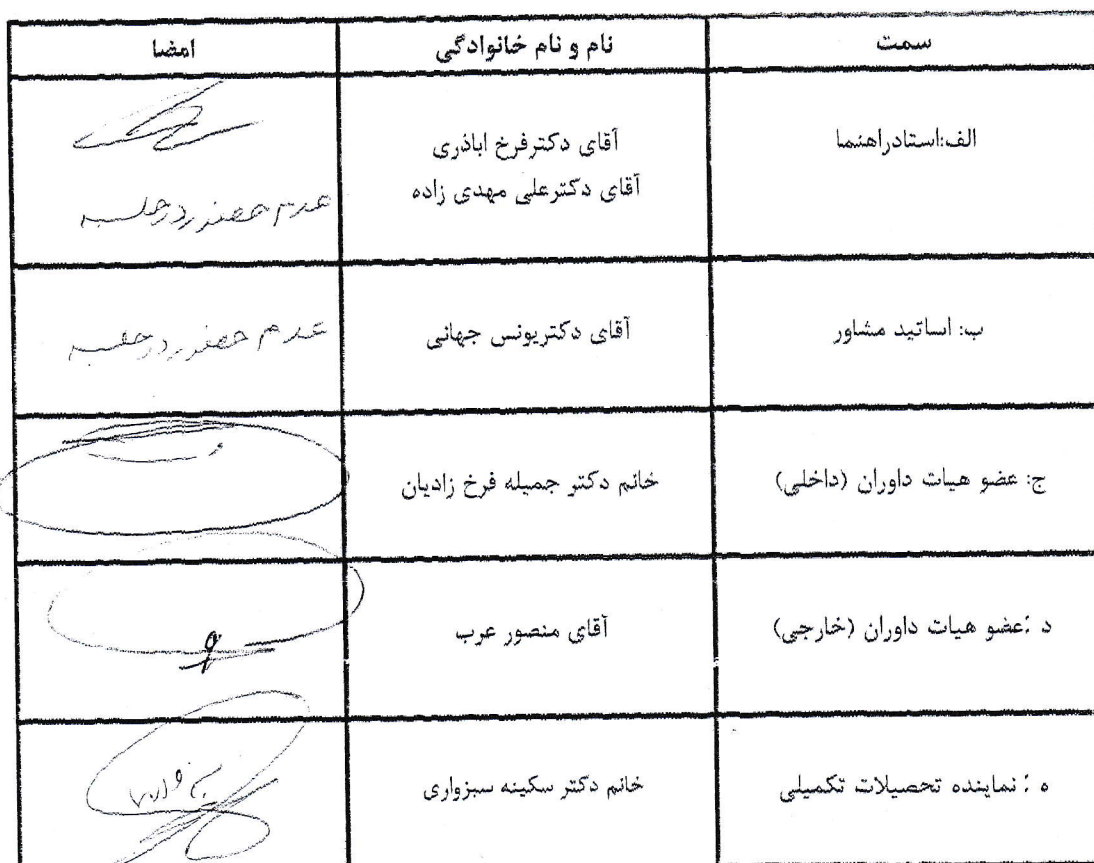 سمت
نام و نام خانوادگی
امضا
الف:استادراهنما
آقای دکترفرخ اباذری
آقای دکترعلی مهدی زاده
عدم حضور در جلسه
ب: اساتید مشاور
آقای دکتریونس جهانی
عدم حضور در جلسه
ج: عضو هیات داوران (داخلی)
خانم دکتر جمیله فرخ زادیان
د :عضو هیات داوران (خارجی)
آقای منصور عرب
ه : نماینده تحصیلات تکمیلی
خانم دکتر سکینه سبزواری